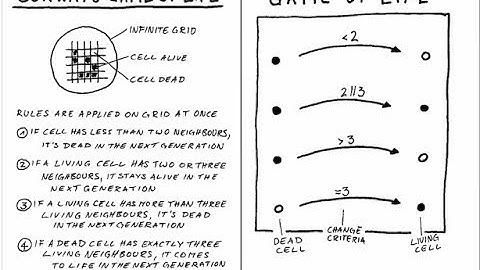 GAME OF LIFE
INFINITE GRID
CELL ALIVE
CELL DEAD
RULES ARE APPLIED ON GRID AT ONCE
1 IF CELL HAS LESS THAN TWO NEIGHBOURS,
IT'S DEAD IN THE NEXT GENERATION
2 IF A LIVING CELL HAS TWO OR THREE
NEIGHBOURS, IT STAYS ALIVE IN THE
NEXT GENERATION
3 IF A LIVING CELL HAS MORE THAN THREE
LIVING NEIGHBOURS, IT'S DEAD
IN THE NEXT GENERATION
4 IF A DEAD CELL HAS EXACTLY THREE
LIVING NEIGHBOURS, IT COMES
TO LIFE IN THE NEXT GENERATION
<2
2||3
>3
=3
DEAD
CELL
CHANGE
CRITERIA
LIVING
CELL